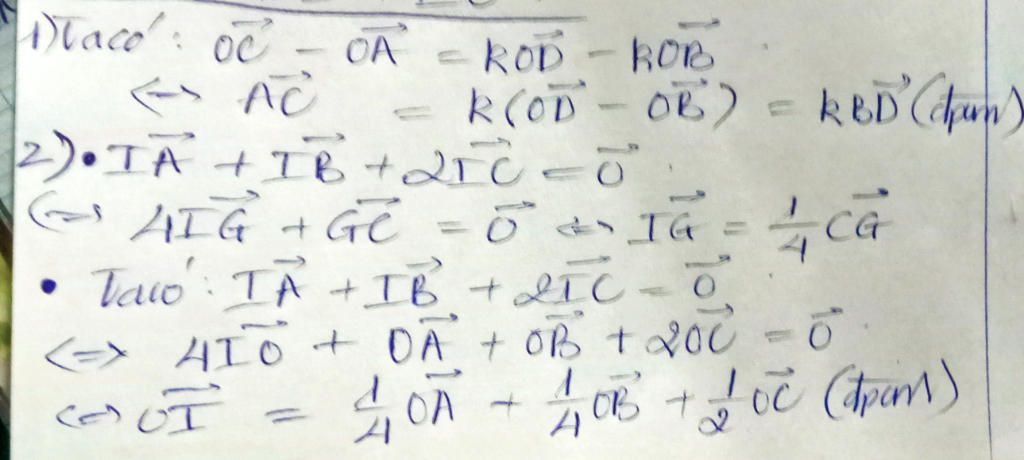 1) Ta có: OC⃗ - OA⃗ = kOD⃗ - kOB⃗
<=> AC⃗ = k(OD⃗ - OB⃗) = kBD⃗ (đpcm)
2) • IA⃗ + IB⃗ + 2IC⃗ = 0⃗
<=> 4IG⃗ + GC⃗ = 0⃗ <=> IG⃗ = 1/4 CG⃗
• Ta có: IA⃗ + IB⃗ + 2IC⃗ = 0⃗
<=> 4IO⃗ + OA⃗ + OB⃗ + 2OC⃗ = 0⃗
<=> OI⃗ = 1/4 OA⃗ + 1/4 OB⃗ + 1/2 OC⃗ (đpcm)